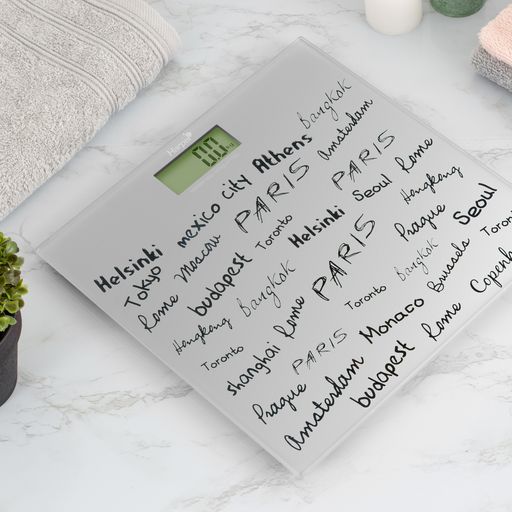 0.0
Bangkok
Helsinki mexico city Athens Amsterdam
Tokyo Moscow PARIS PARIS Rome
Rome budapest Toronto Helsinki Seoul Hongkong
Hongkong Bangkok PARIS Prague Seoul
Toronto shanghai Rome Toronto Bangkok Brussels Toro
Prague PARIS Monaco Rome Copenh
Amsterdam budapest